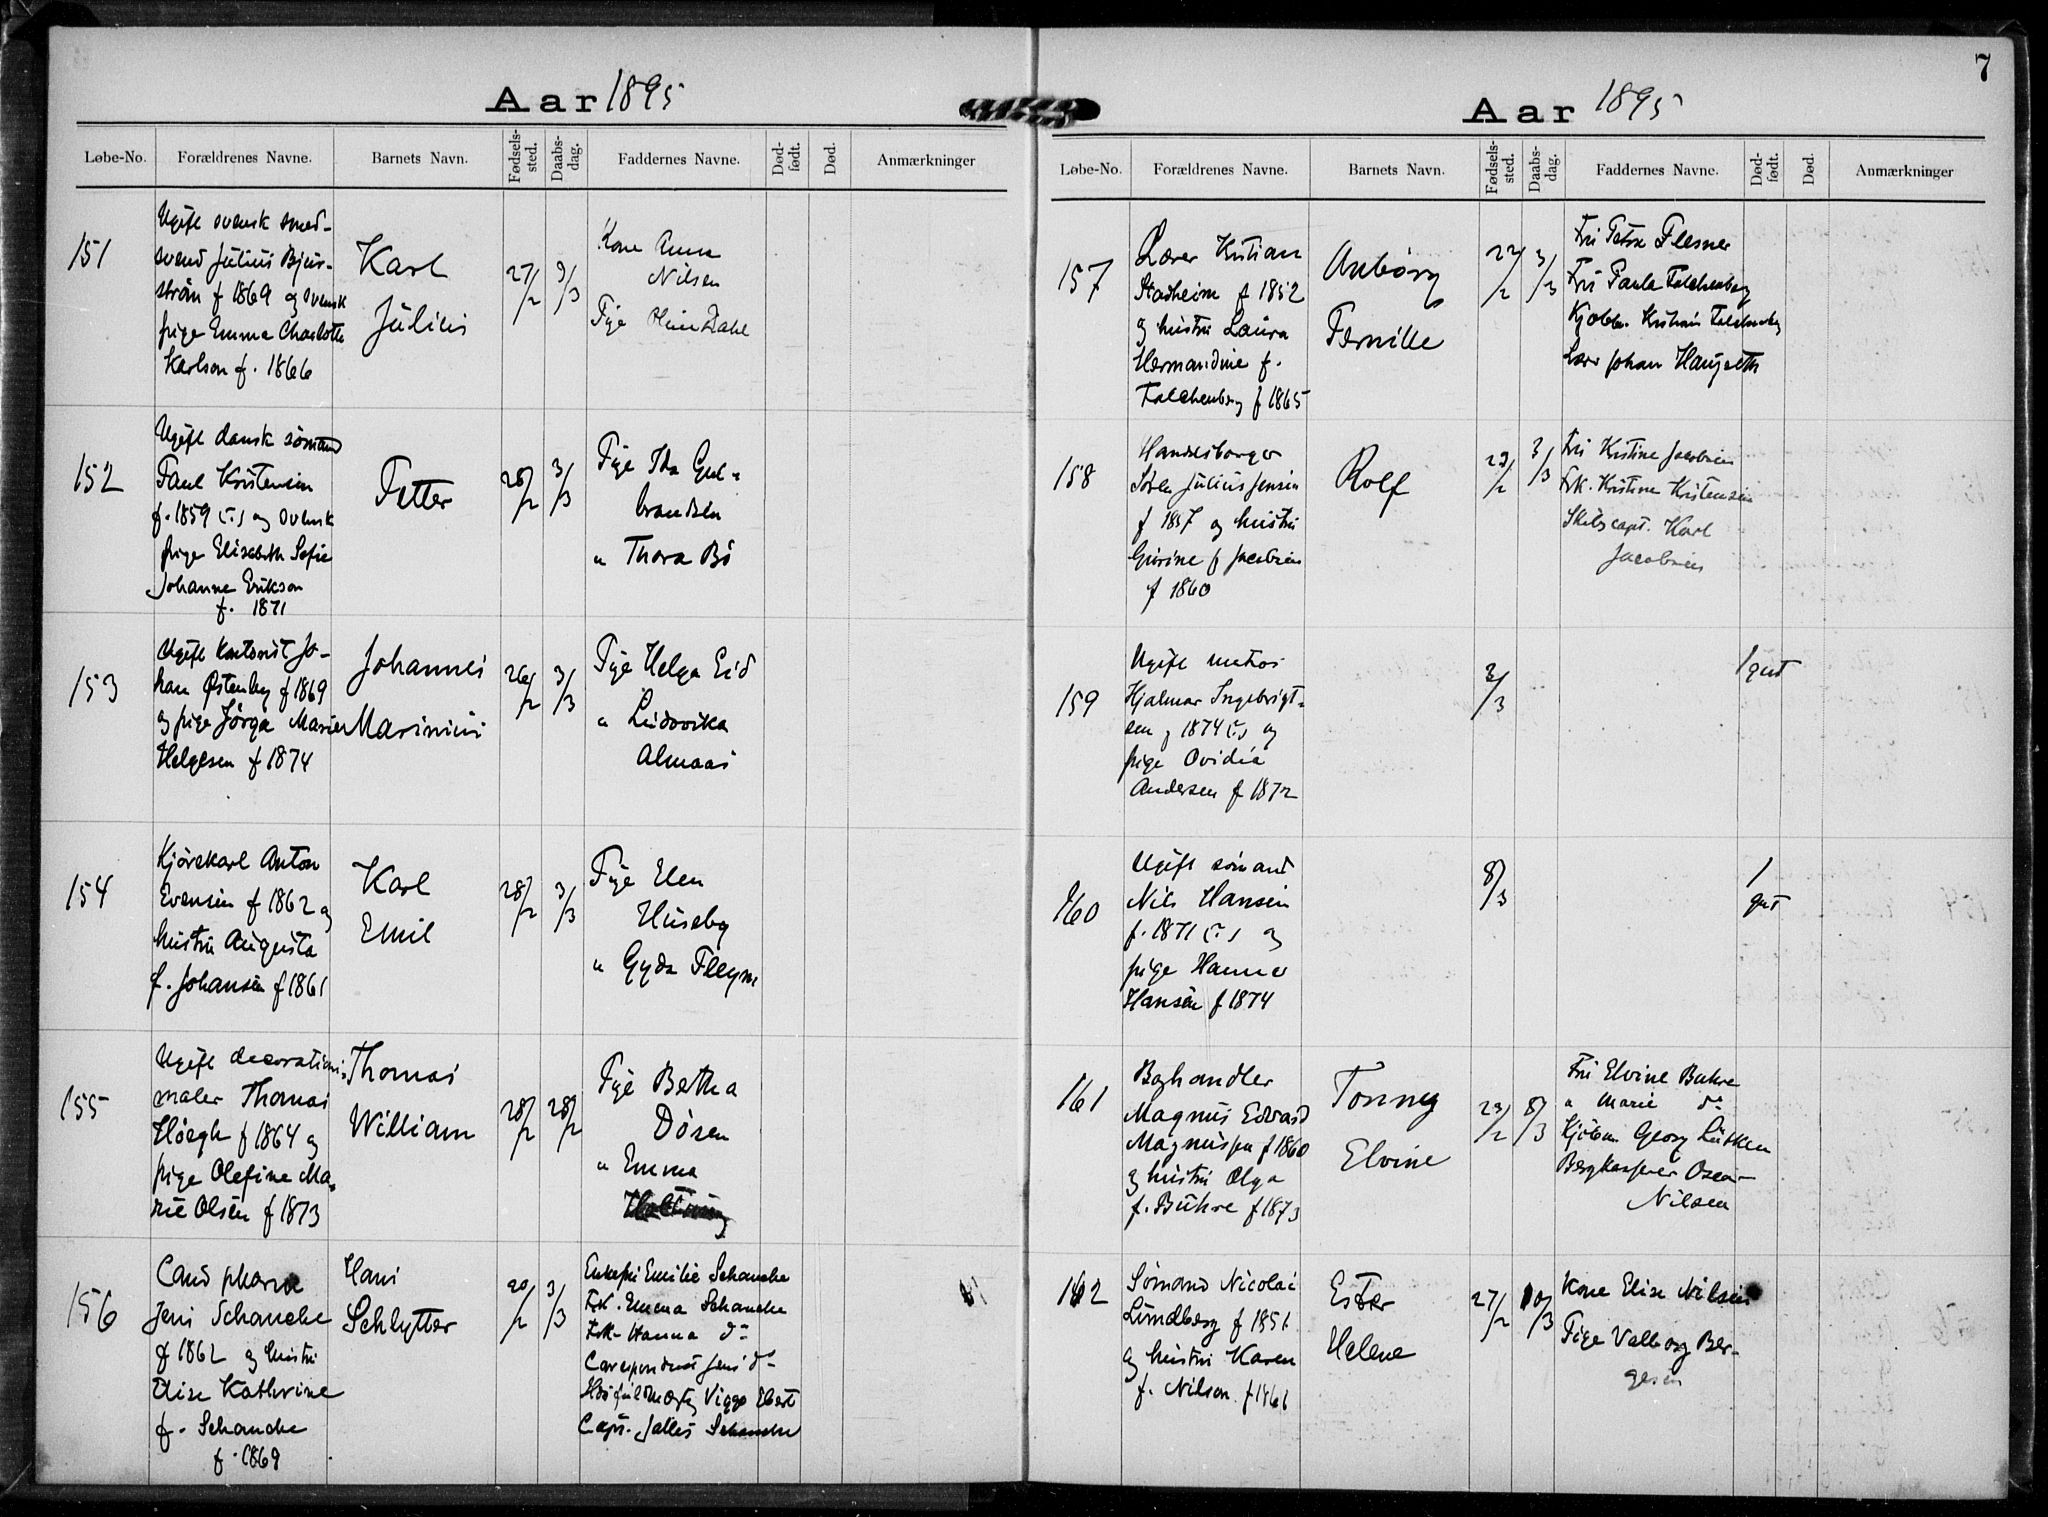 Aar 1895
Løbe-No. Forældrenes Navne. Barnets Navn. Fødsels-sted. Daabs-dag. Faddernes Navne. Død-født. Død. Anmærkninger
151
Ugift svensk smed-
svend Julius Bjur-
strån f 1869 og svensk
pige Emma Charlotte
Karlson f. 1866
Karl
Julius
27/2
3/3
Kone Anna
Nilsen
Pige Dahl
152
Ugift dansk sømand
Paul Kristensen
f. 1859 og svensk
pige Elisabeth Sofie
Johanne Erikson
f. 1871
Petter
28/2
3/3
Pige Ida Gul-
brandsen
" Thora Bö
153
Ugift kontorist Jo-
han Østenby f 1869
og pige Jörga Marie
Helgesen f 1874
Johannes
Marinius
26/2
3/3
Pige Helga Eid
" Ludovika
Almaas
154
Kjørekarl Anton
Evensen f 1862 og
hustru Augusta
f. Johansen f 1861
Karl
Emil
28/2
3/3
Pige Elen
Huseby
" Gyda
155
Ugift decorations-
maler Thomas
Höegh f 1864 og
pige Olefine Ma-
rie Olsen f 1873
Thomas
William
28/2
28/2
Pige Betha
Dösen
" Emma
156
Cand pharm
Jens Schanche
f 1862 og hustru
Elise Kathrine
f. Schanche
f. 1869
Hans
Schlytter
20/2
3/3
Enkefru Emilie Schanche
Frk. Emma Schanche
Frk. Hanna do
Corespondent Jens do
Viggo Ebert
Capt. Schanche
7
Aar 1895
Løbe-No. Forældrenes Navne. Barnets Navn. Fødsels-sted. Daabs-dag. Faddernes Navne. Død-født. Død. Anmærkninger
157
Lærer Kristian
Stadheim f 1852
og hustru Laura
Hermandine f.
Falchenberg f 1865
Anbörg
Pernille
22/2
3/3
Fru Petra Flesner
Fru Paula Falchenberg
Kjøbm. Kristian Falchenberg
Lærer Johan Haugseth
158
Handelsborger
Sören Julius Jensen
f 1857 og hustru
Gurine f Jacobsen
f 1860
Rolf
23/2
3/3
Fru Kristine Jacobsen
Frk. Kristine Kristensen
Skibscapt. Karl
Jacobsen
159
Ugift matros
Hjalmar Ingebrigt-
sen f 1874 og
pige Ovidia
Andersen f 1872
3/3
1 gut
160
Ugift sömand
Nils Hansen
f. 1871 og
pige Hanna
Hansen f 1874
8/3
1
gut
161
Boghandler
Magnus Edvard
Magnussen f 1860
og hustru Olga
f. Buhre f 1873
Tonny
Elvine
23/2
8/3
Fru Elvine Buhre
" Marie do
Kjöbm. Georg Lütken
Bergkasserer Oscar
Nilsen
162
Sömand Nicolai
Lundberg f 1851
og hustru Karen
f. Nilson f 1861
Ester
Helene
27/2
10/3
Kone Elise Nilsen
Pige Valborg Ber-
gesen